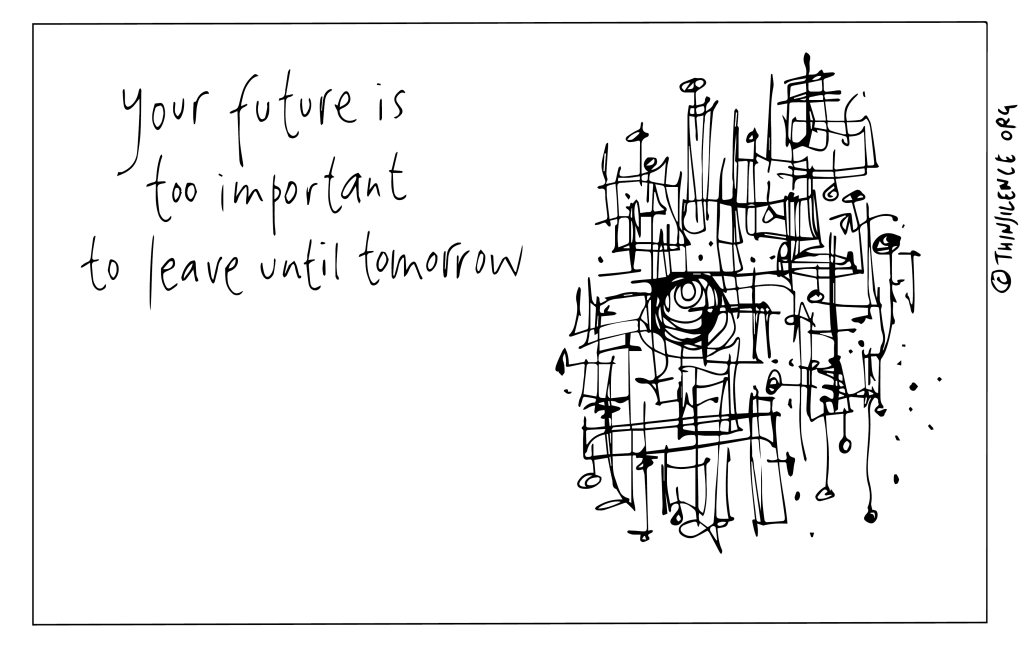 your future is
too important
to leave until tomorrow
© THINSILENCE ORG